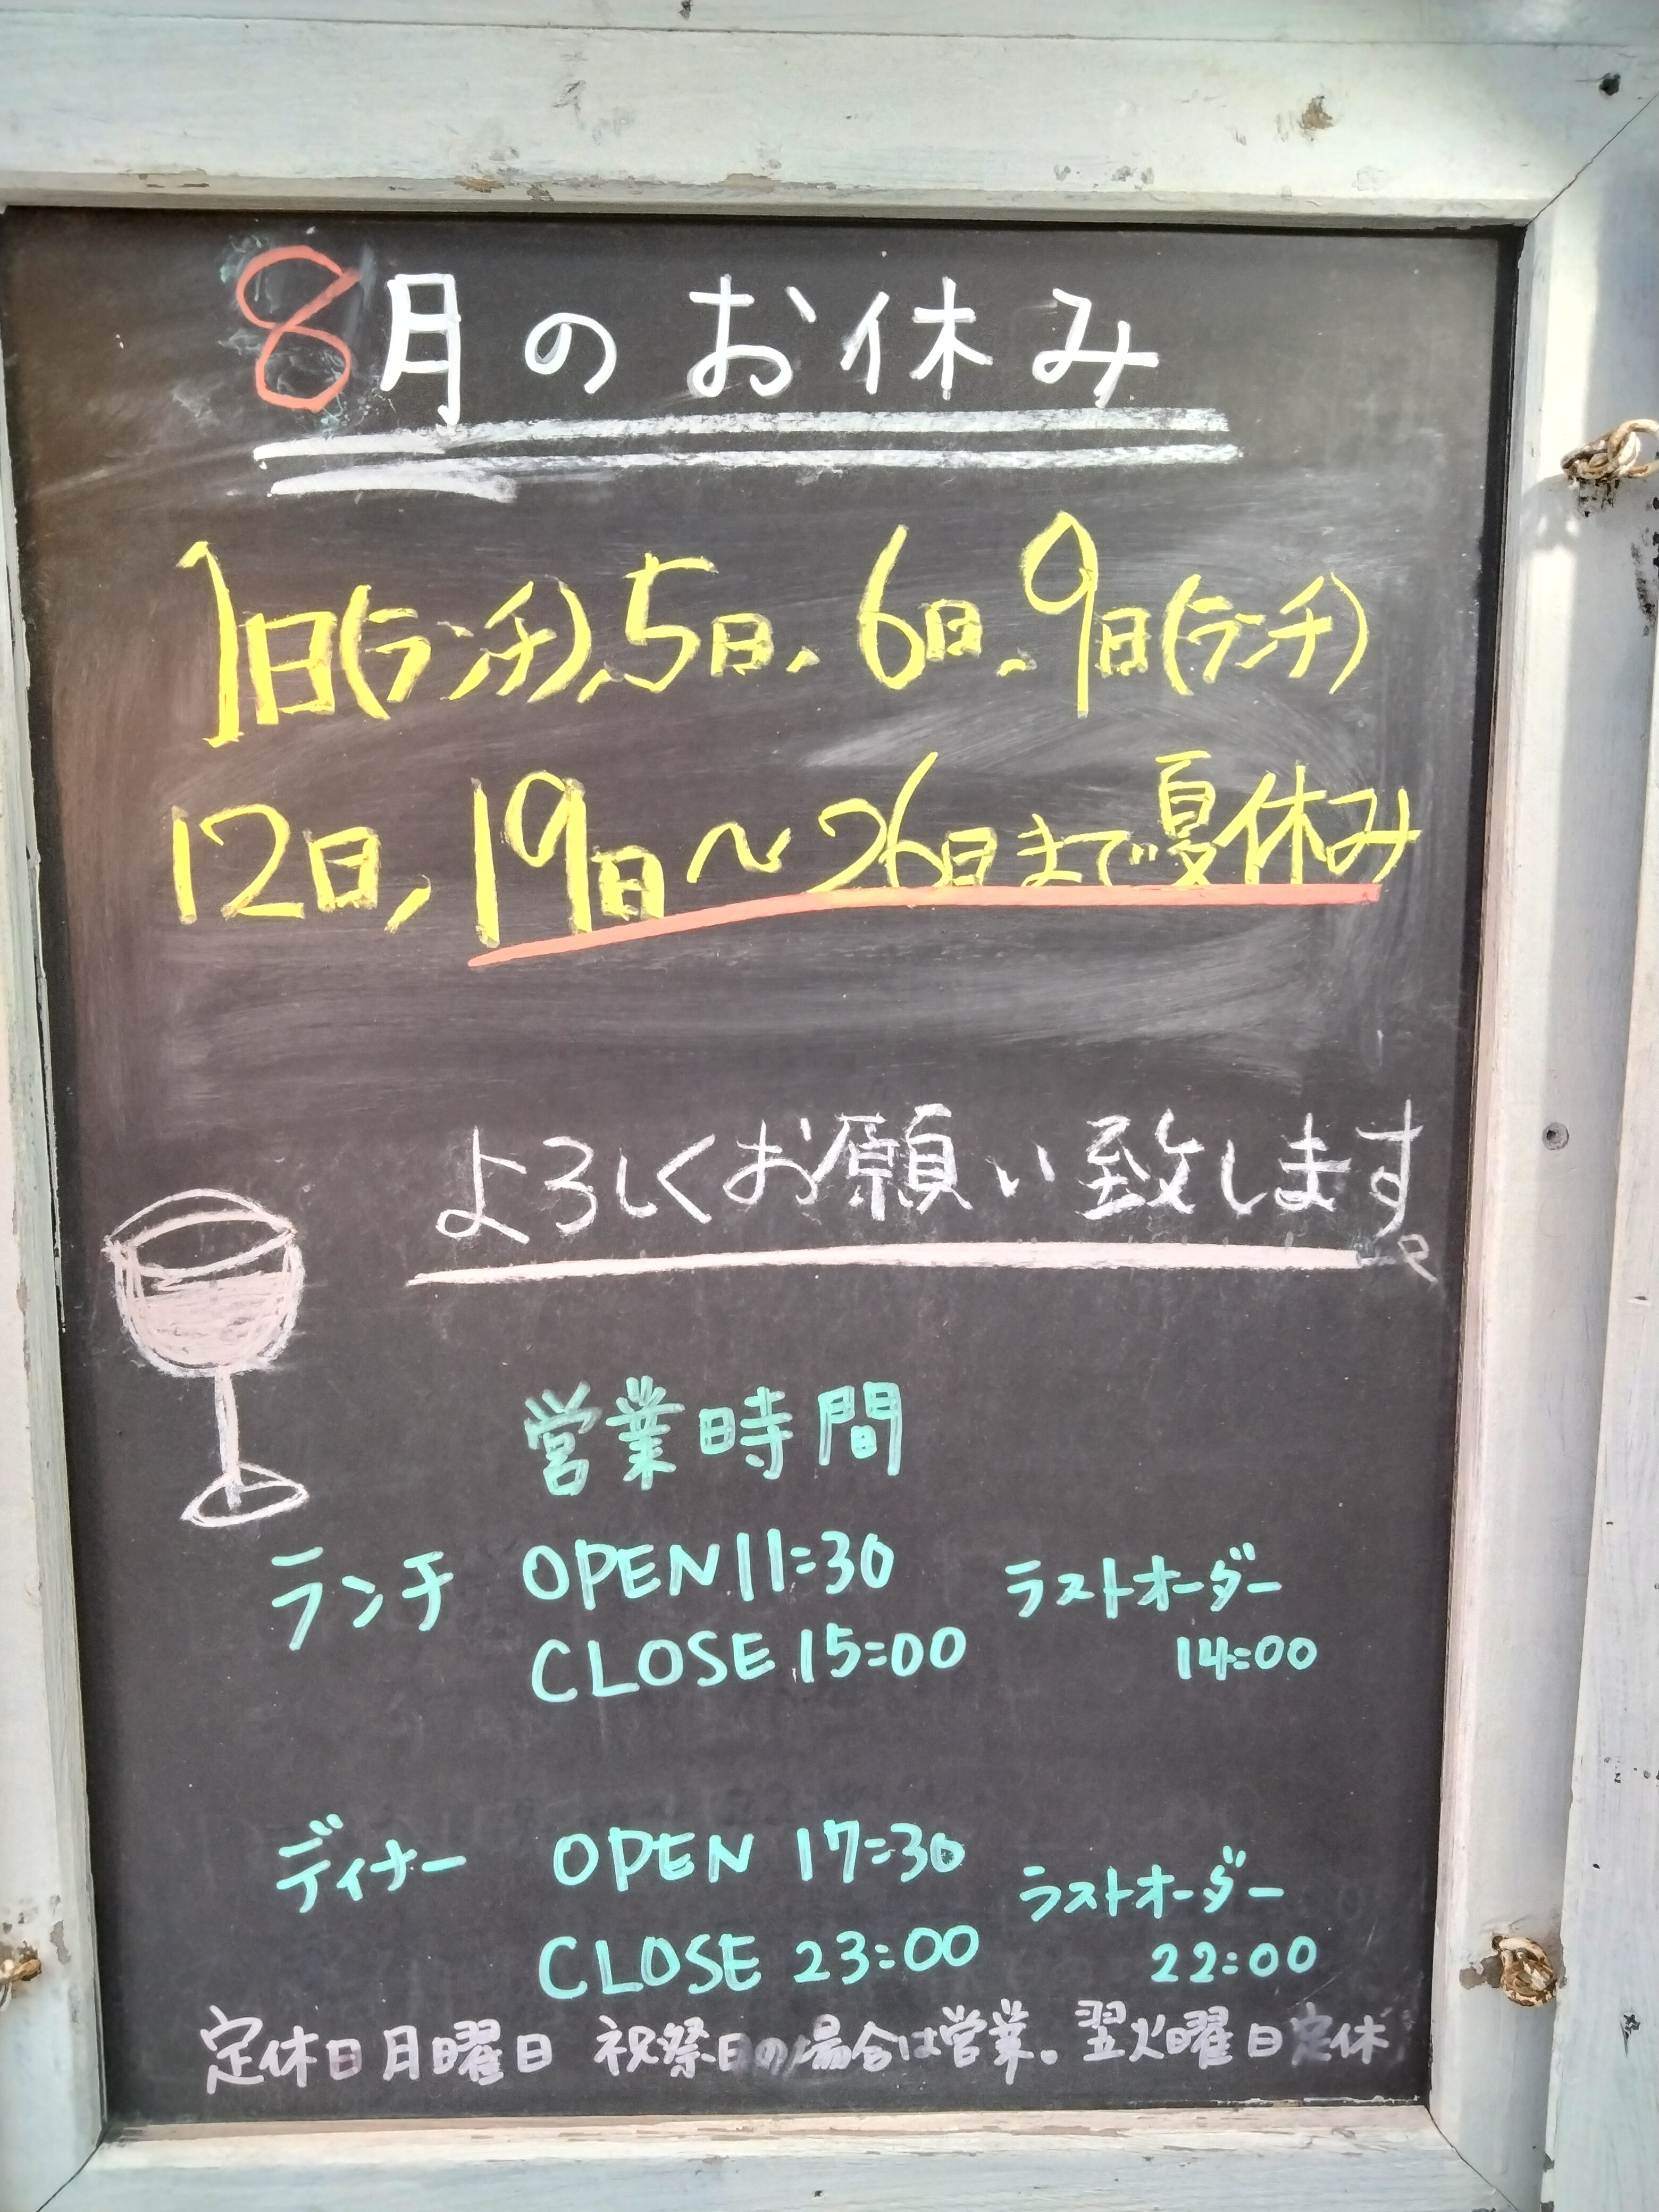 8月のお休み
1日(ランチ)、5日、6日、9日(ランチ)
12日、19日〜26日まで夏休み
よろしくお願い致します
営業時間
ランチ OPEN 11:30 ラストオーダー
CLOSE 15:00 14:00
ディナー OPEN 17:30 ラストオーダー
CLOSE 23:00 22:00
定休日月曜日 祝祭日の場合は営業。翌火曜日定休